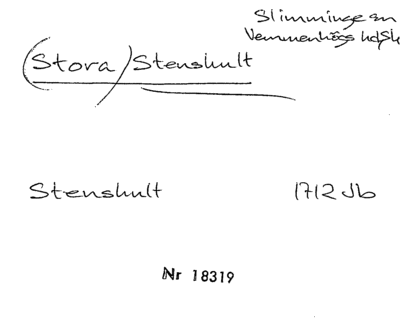 Slimminge sn
Vemmenhögs hd, Sk
(Stora) Stenshult
Stenshult 1712 Jb
Nr 18319